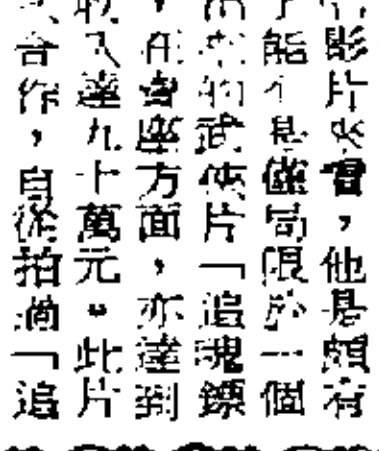 影片會，他是頗有
能不是僅局限於一個
出來的武俠片「追魂鏢
，在賣座方面，亦達到
收入達九十萬元。此片
合作，自從拍過「追